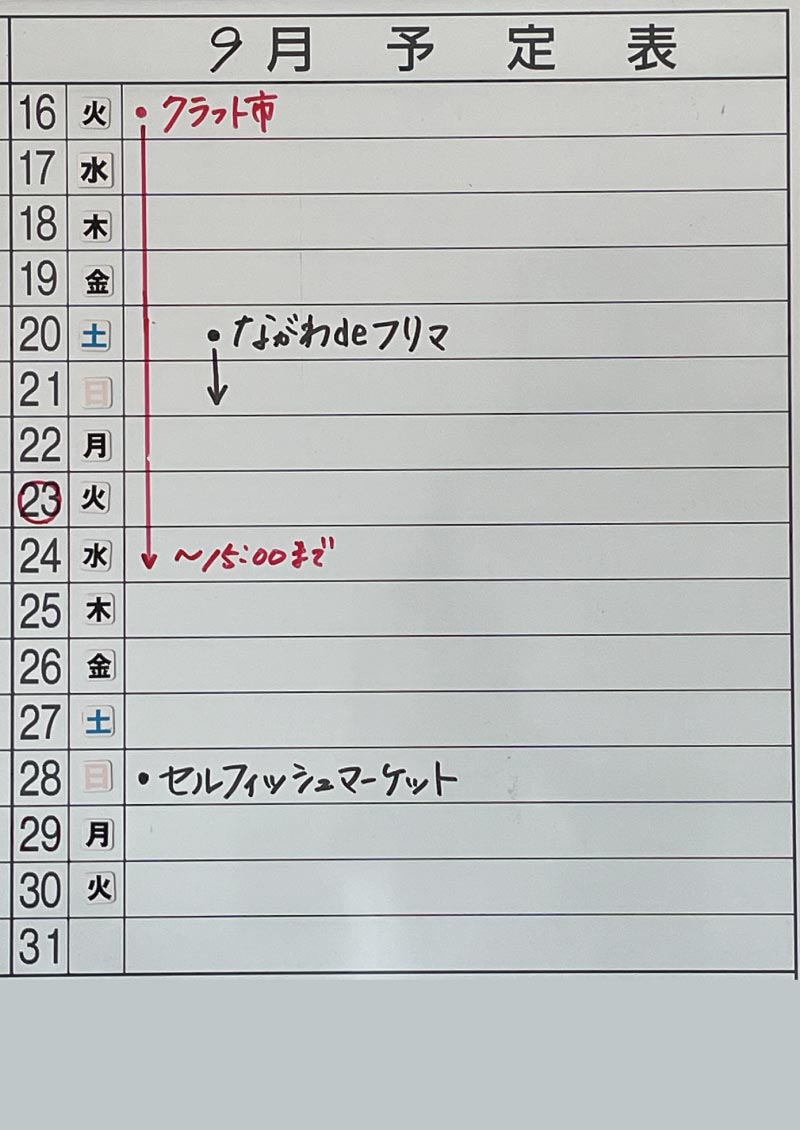 9月 予定表
16 火 ・クラフト市
17 水
18 木
19 金
20 土 ・ながわdeフリマ
21 日
22 月
23 火
24 水 〜15:00まで
25 木
26 金
27 土
28 日 ・セルフィッシュマーケット
29 月
30 火
31